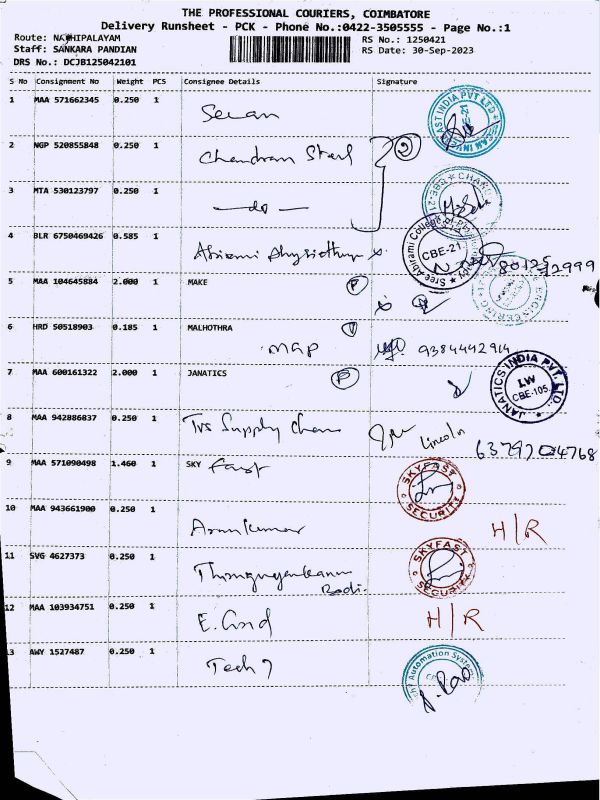 THE PROFESSIONAL COURIERS, COIMBATORE
Delivery Runsheet - PCK - Phone No.:0422-3505555 - Page No.:1
Route: NACHIPALAYAM RS No.: 1250421
Staff: SANKARA PANDIAN RS Date: 30-Sep-2023
DRS No.: DCJB125042101
S No Consignment No Weight PCS Consignee Details Signature
1 MAA 571662345 0.250 1
2 NGP 520855848 0.250 1 Chandran Steel 2
3 MTA 530123797 0.250 1 do
4 BLR 6750469426 0.585 1 Abirami
Sree Abirami College CBE-21
5 MAA 104645884 2.000 1 MAKE P
6 HRD 50518903 0.185 1 MALHOTHRA
map 9384442914
7 MAA 600161322 2.000 1 JANATICS P
JANATICS INDIA PVT. LTD. LW CBE-105.
8 MAA 942886837 0.250 1 Tvs Supply Chain Lincoln 6379704768
9 MAA 571090498 1.460 1 SKY Fast
SKYFAST SECURITY
10 MAA 943661900 0.250 1 Arunkumar H/R
11 SVG 4627373 0.250 1
SKYFAST SECURITY
12 MAA 103934751 0.250 1 H/R
13 AWY 1527487 0.250 1 Tech 7
Automation System